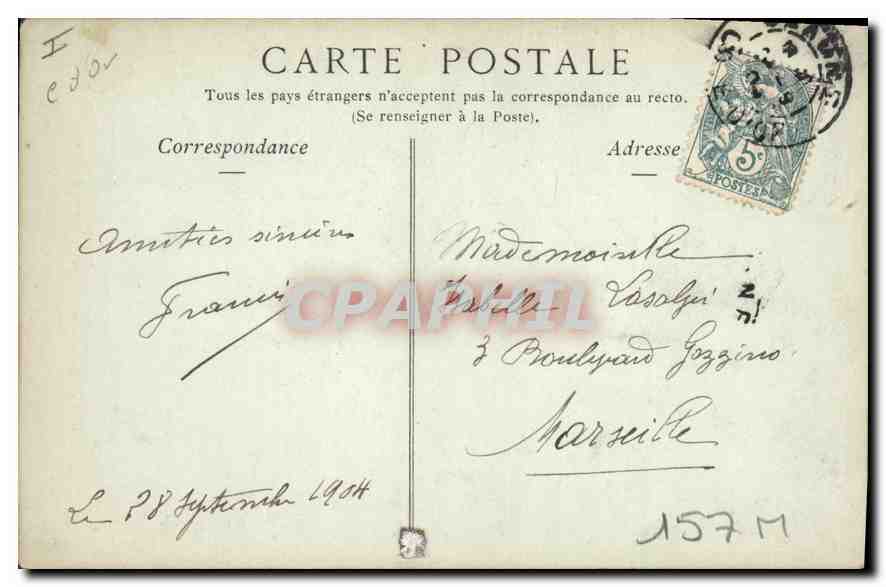 CARTE POSTALE
Tous les pays étrangers n'acceptent pas la correspondance au recto.
(Se renseigner à la Poste).
Correspondance
Adresse
5c
POSTES
COTE D'OR
Amitiés sincères
Francis
Mademoiselle
Isabelle
3 Boulevard Gozzino
Marseille
Le 28 Septembre 1904
157M
CPAPHIL